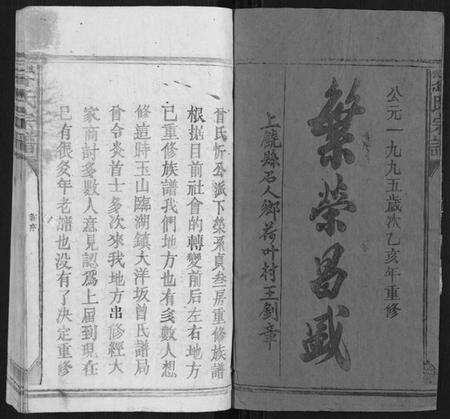 公元一九九五歲次乙亥年重修
繁榮昌盛
上饒縣石人鄉荷叶村王劍章
曾氏忻公派下榮采貞叁房重修族譜
根据目前社會的轉變前后左右地方
已重修族譜我們地方也有多數人想
修這時玉山臨湖鎮大洋坂曾氏譜局
曾令炎首士多次來我地方出修經大
家商討多數人意見認爲上屆到現在
已有很多年老譜也没有了決定重修
氏宗譜